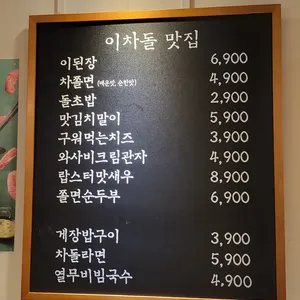 이차돌 맛집
이된장 6,900
차쫄면 (매운맛, 순한맛) 4,900
돌초밥 2,900
맛김치말이 5,900
구워먹는치즈 3,900
와사비크림관자 4,900
랍스터맛새우 8,900
쫄면순두부 6,900
게장밥구이 3,900
차돌라면 5,900
열무비빔국수 4,900